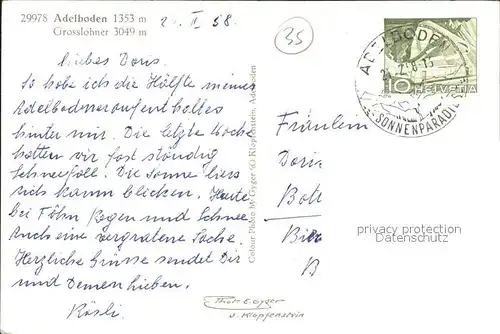 29978 Adelboden 1353 m
Grosslohner 3049 m
2. II 58.
35
Liebes Doris.
So habe ich die Hälfte meines
Adelbodneraufenthaltes
hinter mir. Die letzte Woche
hatten wir fast ständig
Schneefall. Die Sonne liess
sich kaum blicken. Heute
bei Föhn Regen und Schnee.
Auch eine vergratene Sache.
Herzliche Grüsse sendet Dir
und Deinen lieben.
Rösli.
Colour Photo E. Gyger & O. Klopfenstein Adelboden
ADELBODEN
SONNENPARADIES
10 HELVETIA
Fräulein
Doris
Bott
B
privacy protection
Variable data
Phot. E. Gyger
u. Klopfenstein